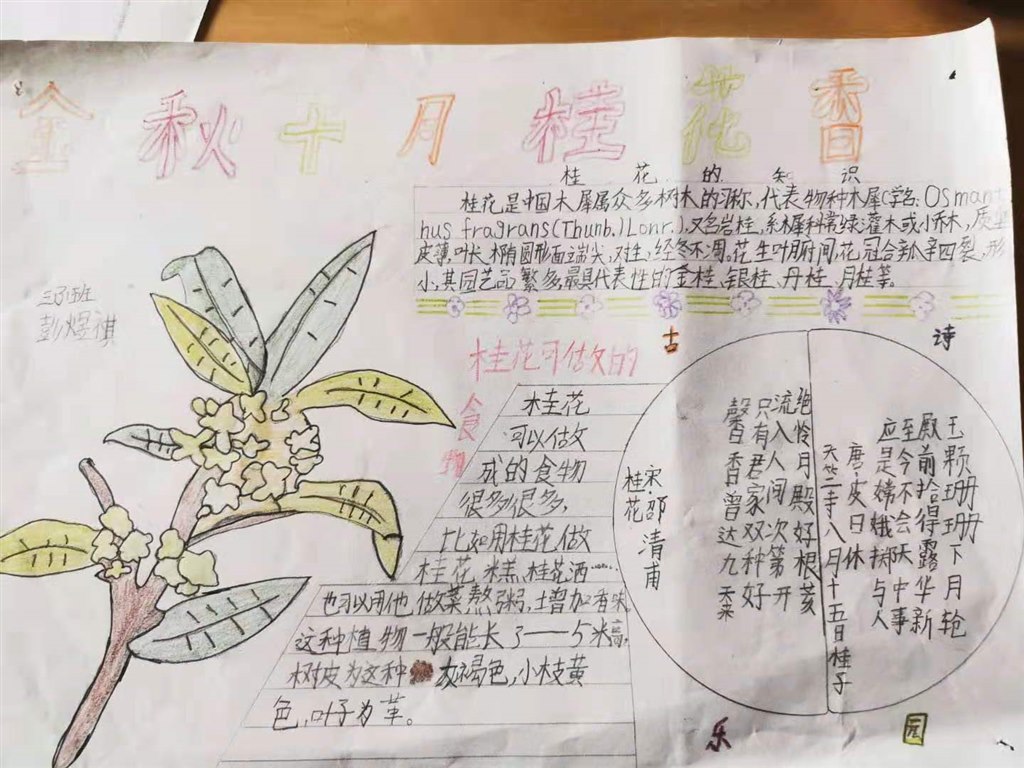 金秋十月桂花香
桂花的知识
桂花是中国木犀属众多树木的泖称,代表物种木犀(学名:Osmant
hus fragrans(Thunb.)Lonr.),又名岩桂,系木犀科常绿灌木或小乔木,质坚
皮薄,叶长椭圆形面端尖,对生,经冬不凋。花生叶腑间,花冠合瓣四裂,形
小,其园艺品繁多最具代表性的金桂、银桂、丹桂、月桂等。
班
彭煜祺
桂花可做的
食物
桂花
可以做
成的食物
很多很多,
比如用桂花做
桂花糕,桂花酒……
也可以用他,做菜熬粥,增加香味
这种植物一般能长了一—5米高
树皮为这种灰褐色,小枝黄
色,叶子为革。
古诗
乐园
玉颗珊珊下月轮
殿前拾得露华新
至今不会天中事
应是嫦娥掷与人
唐·皮日休
天竺寺八月十五日桂子
绝怜月殿好根荄
流入人间次第开
只有君家双种好
馨香曾达九天来
宋·邵清甫
桂花